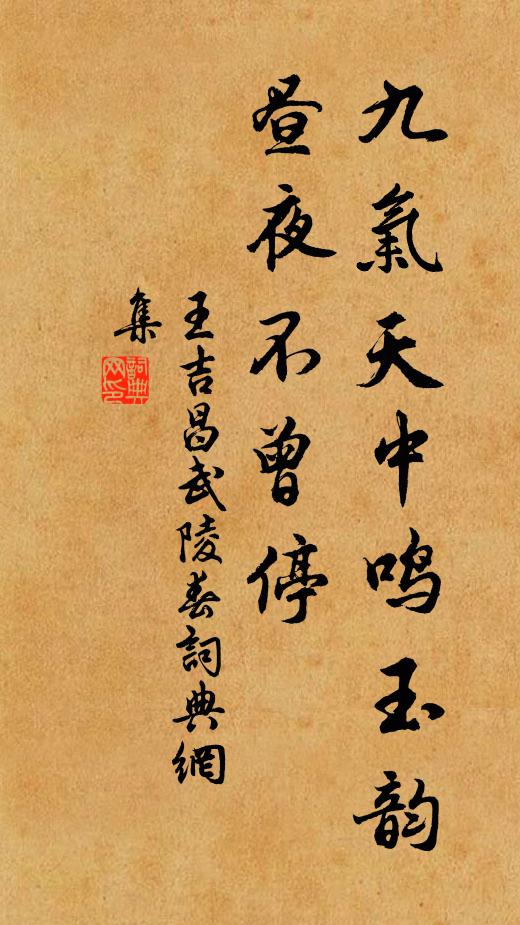 九氣天中鳴玉韵
昼夜不曾停
王吉昌武陵春詞典網
集
詞典
网印